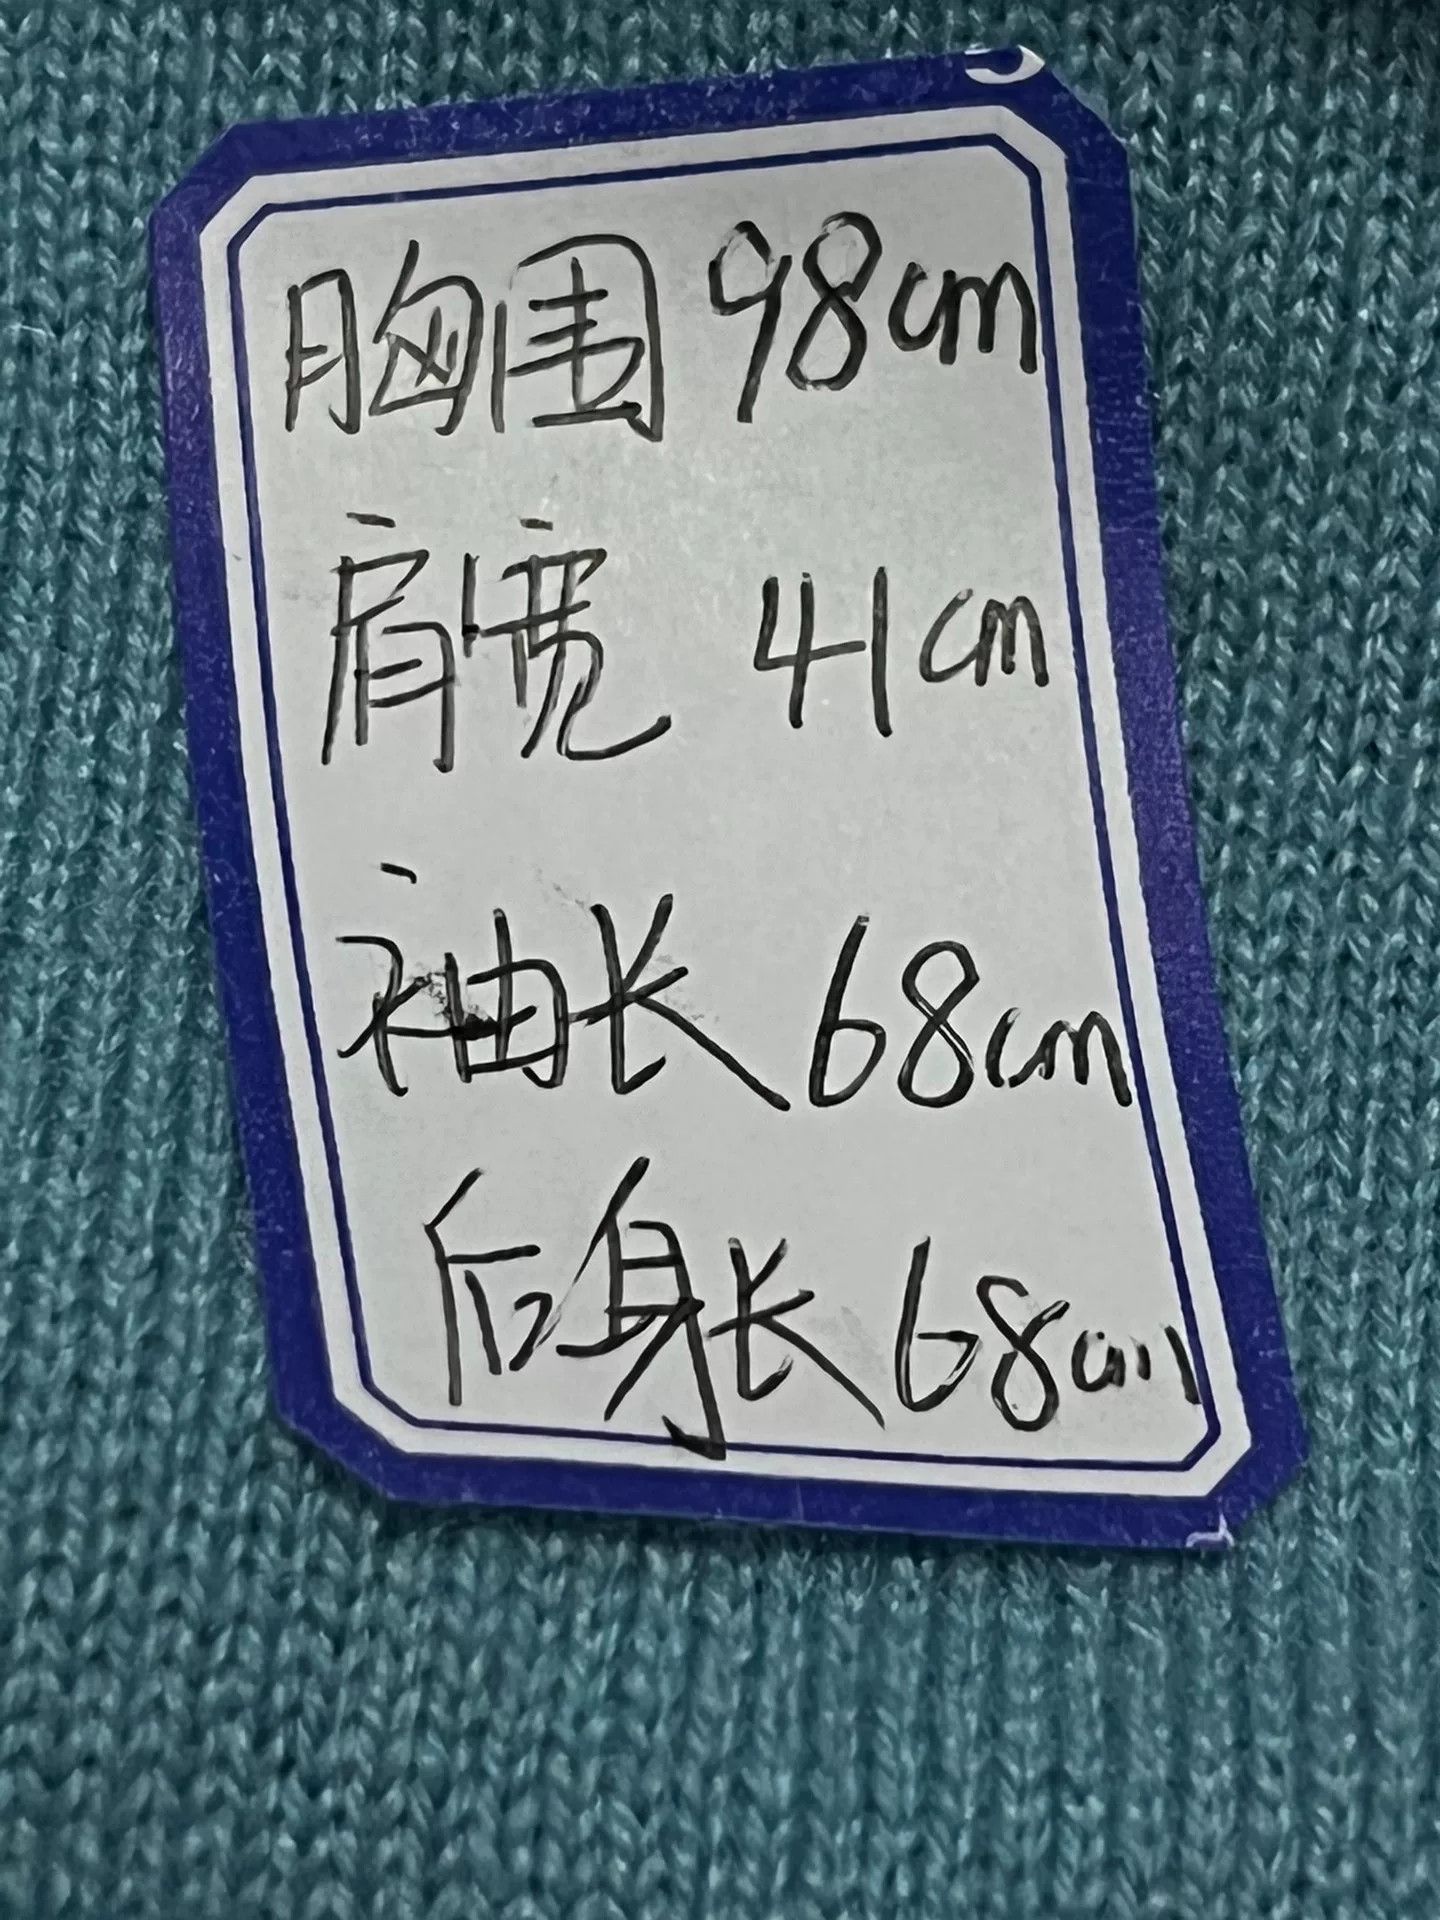 胸围 98cm
肩宽 41cm
袖长 68cm
后身长 68cm